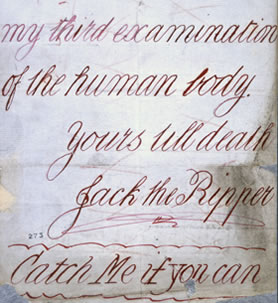 my third examination
of the human body.
Yours till death
Jack the Ripper
273
Catch Me if you can